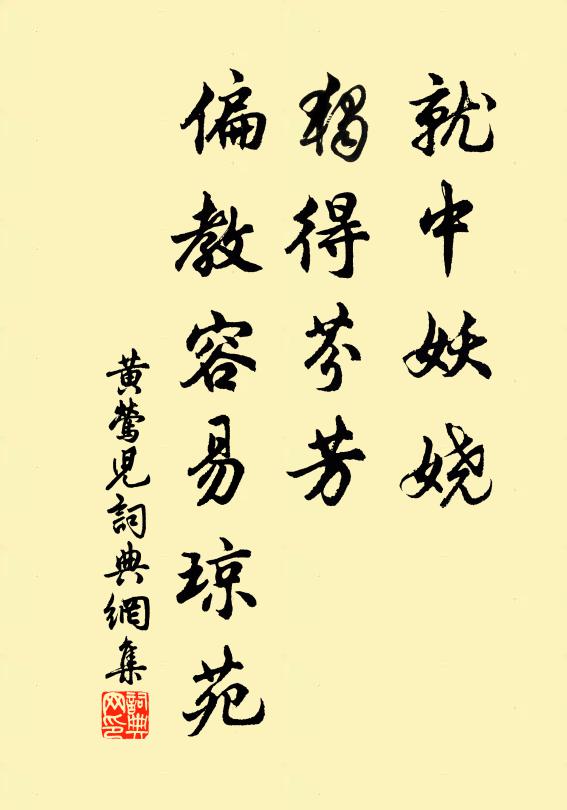 就中妖娆
独得芬芳
偏教容易琼苑
黄莺儿词典網集
詞典
网印